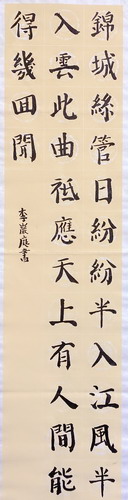 錦城絲管日紛紛半入江風半
入雲此曲祗應天上有人間能
得幾回聞
李嚴庭書